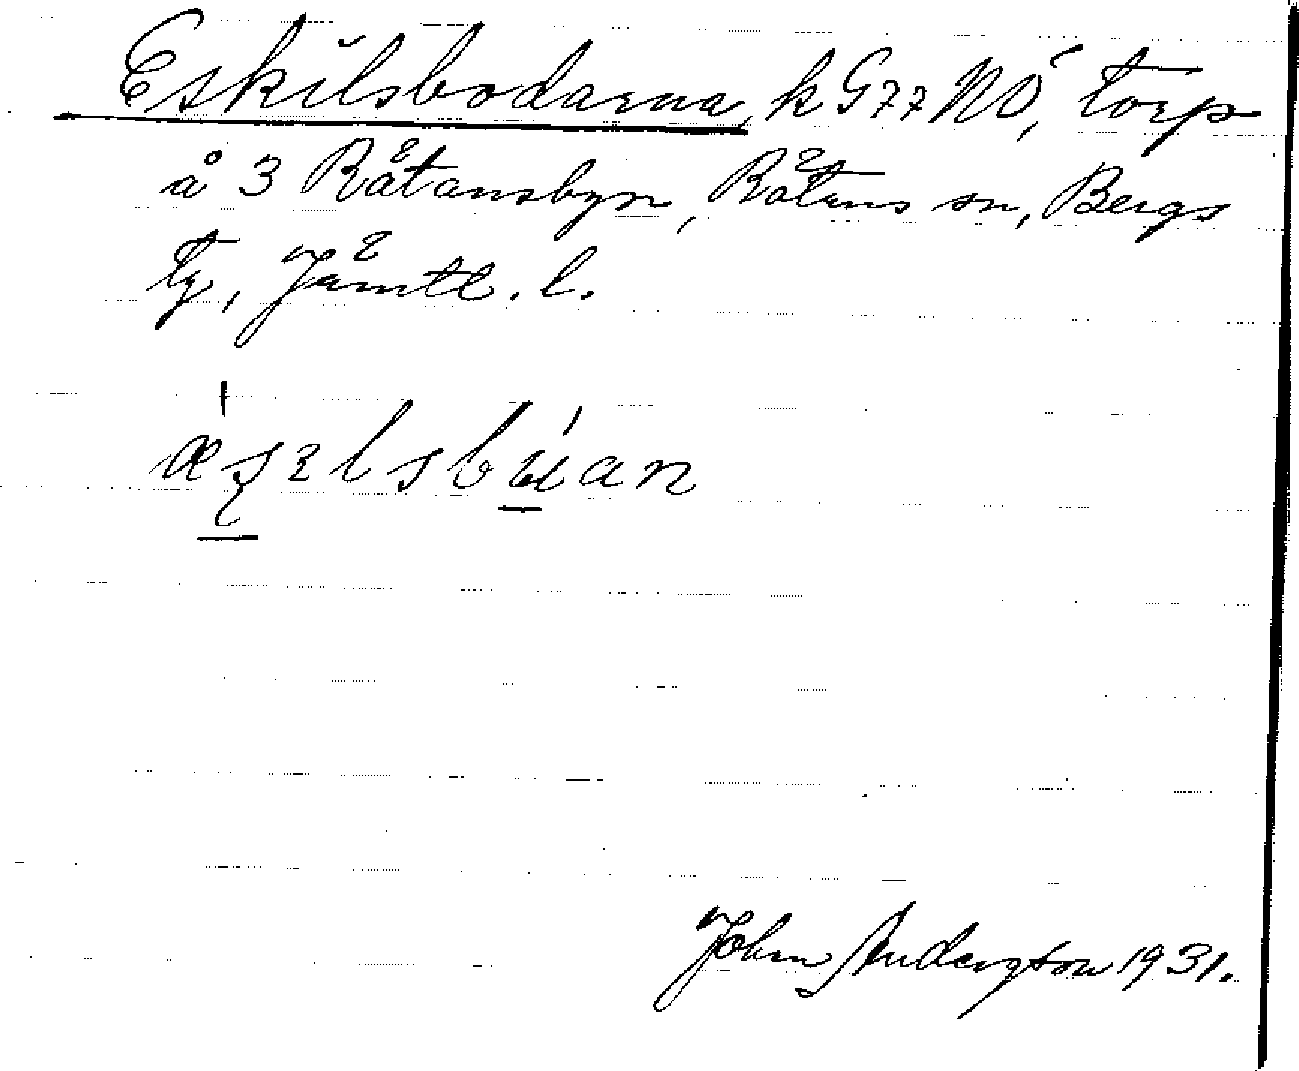 Eskilsbodarna, k G77 NÖ, torp
å 3 Råtansbyn, Råtans sn, Bergs
tg, Jämtl. l.
John Anderston 1931.